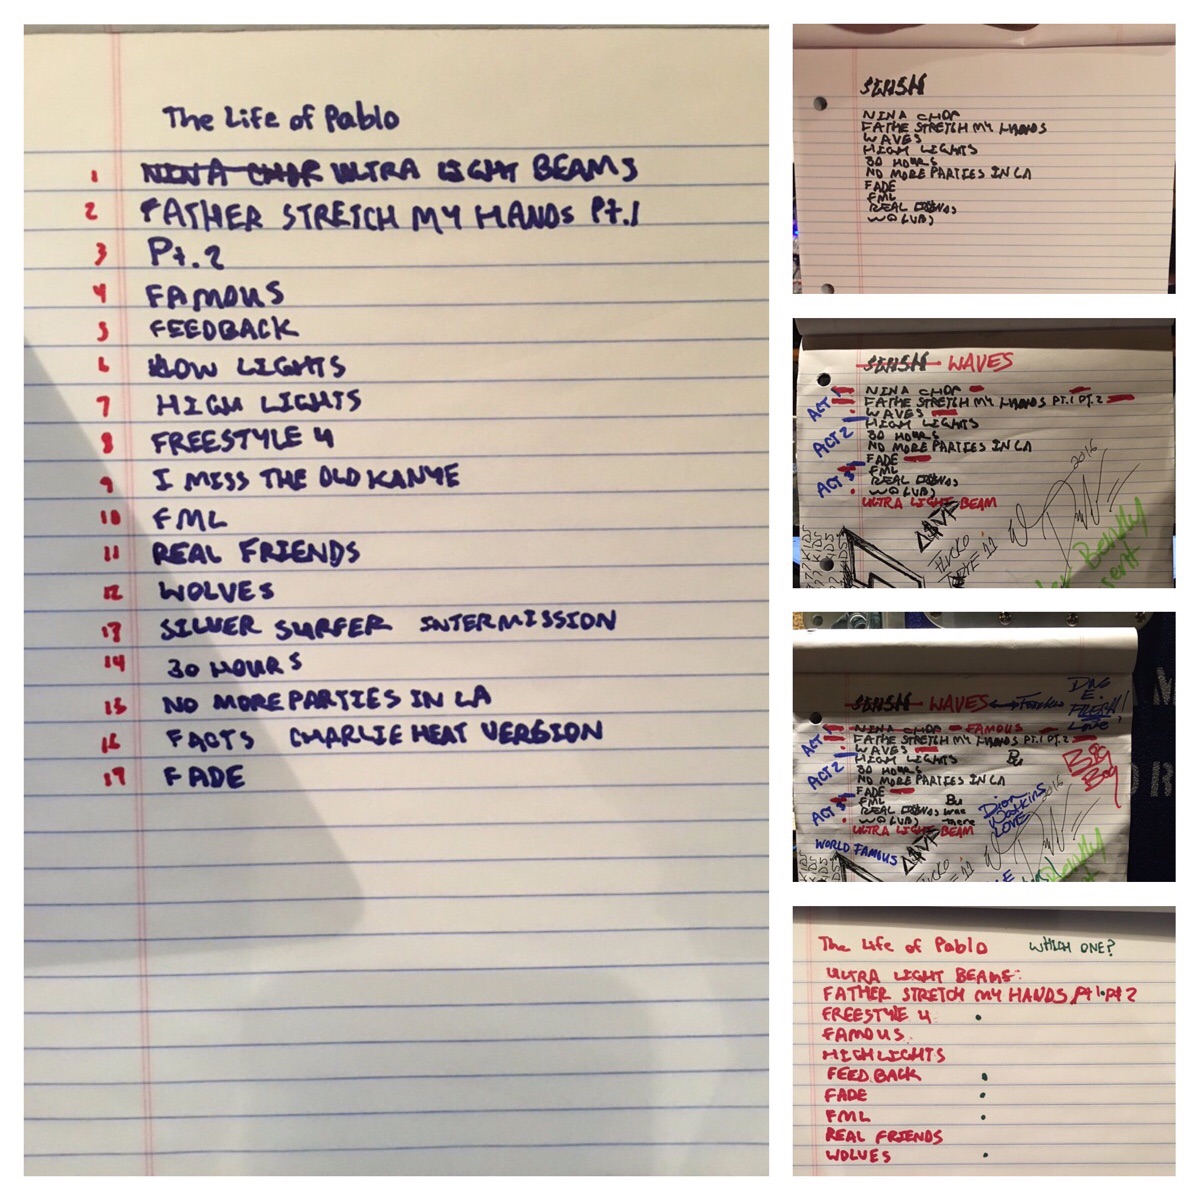 The Life of Pablo
1 NINA CHOP ULTRA LIGHT BEAMS
2 FATHER STRETCH MY HANDS Pt.1
3 Pt.2
4 FAMOUS
5 FEEDBACK
6 LOW LIGHTS
7 HIGH LIGHTS
8 FREESTYLE 4
9 I MISS THE OLD KANYE
10 FML
11 REAL FRIENDS
12 WOLVES
13 SILVER SURFER INTERMISSION
14 30 HOURS
15 NO MORE PARTIES IN LA
16 FACTS CHARLIE HEAT VERSION
17 FADE
SWISH
NINA CHOP
FATHE STRETCH MY HANDS
WAVES
HIGH LIGHTS
30 HOURS
NO MORE PARTIES IN LA
FADE
FML
REAL FRIENDS
WOLVES
SWISH WAVES
ACT 1
NINA CHOP
FATHE STRETCH MY HANDS PT.1 PT.2
WAVES
ACT 2
HIGH LIGHTS
30 HOURS
NO MORE PARTIES IN LA
FADE
ACT 3
FML
REAL FRIENDS
WOLVES
ULTRA LIGHT BEAM
2016
SWISH WAVES
DOUG
E.
FRESH!
LOVE!
ACT 1
NINA CHOP FAMOUS
FATHE STRETCH MY HANDS PT.1 PT.2
WAVES
ACT 2
HIGH LIGHTS
30 HOURS
NO MORE PARTIES IN LA
FADE
ACT 3
FML
REAL FRIENDS was
WOLVES there
ULTRA LIGHT BEAM
WORLD FAMOUS
Big
Boy
Dion
Watkins
LOVE
2016
The Life of Pablo WHICH ONE?
ULTRA LIGHT BEAMS
FATHER STRETCH MY HANDS Pt 1 · Pt 2
FREESTYLE 4
FAMOUS
HIGHLIGHTS
FEED BACK
FADE
FML
REAL FRIENDS
WOLVES